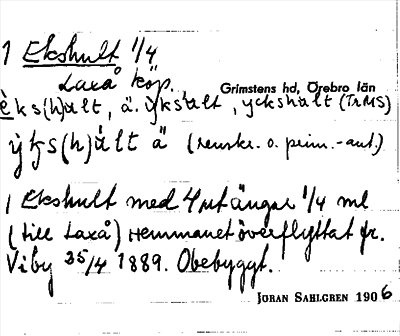 1 Ekshult 1/4
Laxå köp.
Grimstens hd, Örebro län
èks(h)ult, ä. ỳks'ult, yckshult (TrMS)
s(h)ùlt ä (renskr. o. prim.-ant.)
1 Ekshult med 4 utängar 1/4 ml
(till Laxå) Hemmanet överflyttat fr.
Viby 25/4 1889. Obebyggt.
JÖRAN SAHLGREN 1906